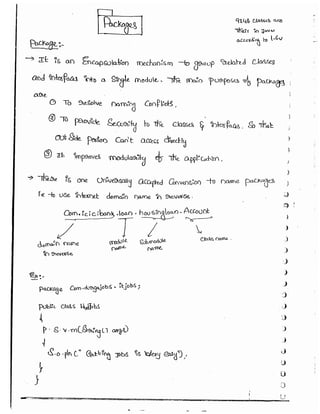 Packages
Package :-
→ It is an Encapsulation mechanism to group related classes
and interfaces into a single module. The main purposes of packages
are
① To resolve naming conflicts.
② To provide Security to the classes & interfaces. So that
outside person can't access directly
③ It improves modularity of the application.
→ There is one universally accepted convention to name packages
i.e to use internet domain name in reverse.
com.icicibank.loan.housingloan.Account
domain name module submodule class name
in reverse name name
Ex:-
package com.durgajobs.itjobs;
public class HydJobs
{
p. s. v. m(String[] args)
{
S.o.pln("Getting jobs is very easy");
}
}